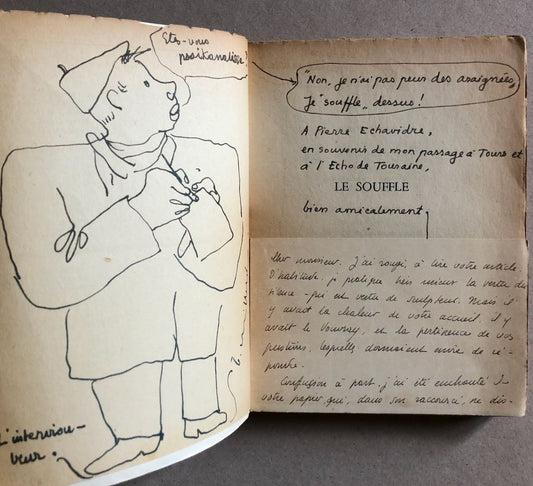 Etes-vous
psaikanaliste?
L'interviou-
veur.
"Non, je n'ai pas peur des araignées,
Je "souffle" dessus!
A Pierre Echavidre,
en souvenir de mon passage à Tours et
à l'Echo de Touraine,
LE SOUFFLE
bien amicalement.
Cher monsieur. J'ai rougi, à lire votre article.
D'habitude, je pratique très mieux la vertu du
silence - qui est vertu de sculpteur. Mais il
y avait la chaleur de votre accueil, il y
avait le Vouvray, et la pertinence de vos
questions, lesquelles donnaient envie de ré-
pondre.
Confusion à part, j'ai été enchanté de
votre papier, qui, dans son raccourci, ne dis-